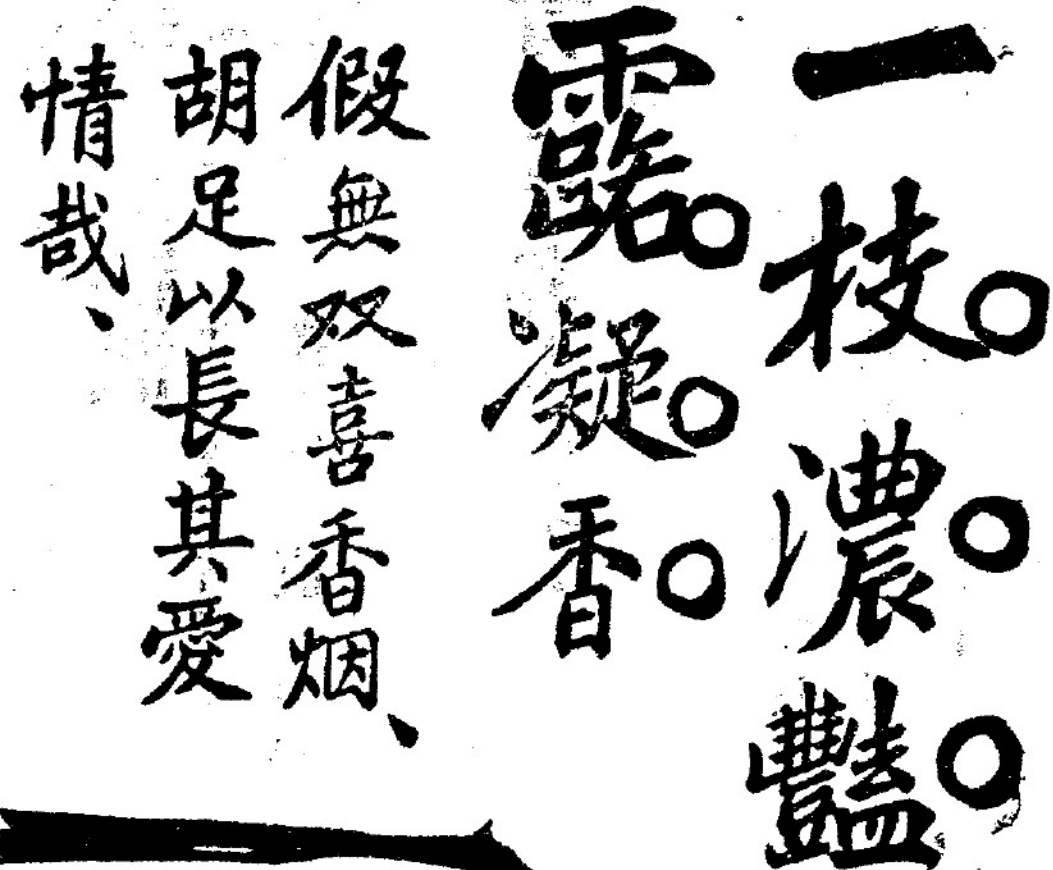 一枝濃豔
露凝香
假無双喜香烟、
胡足以長其愛
情哉、